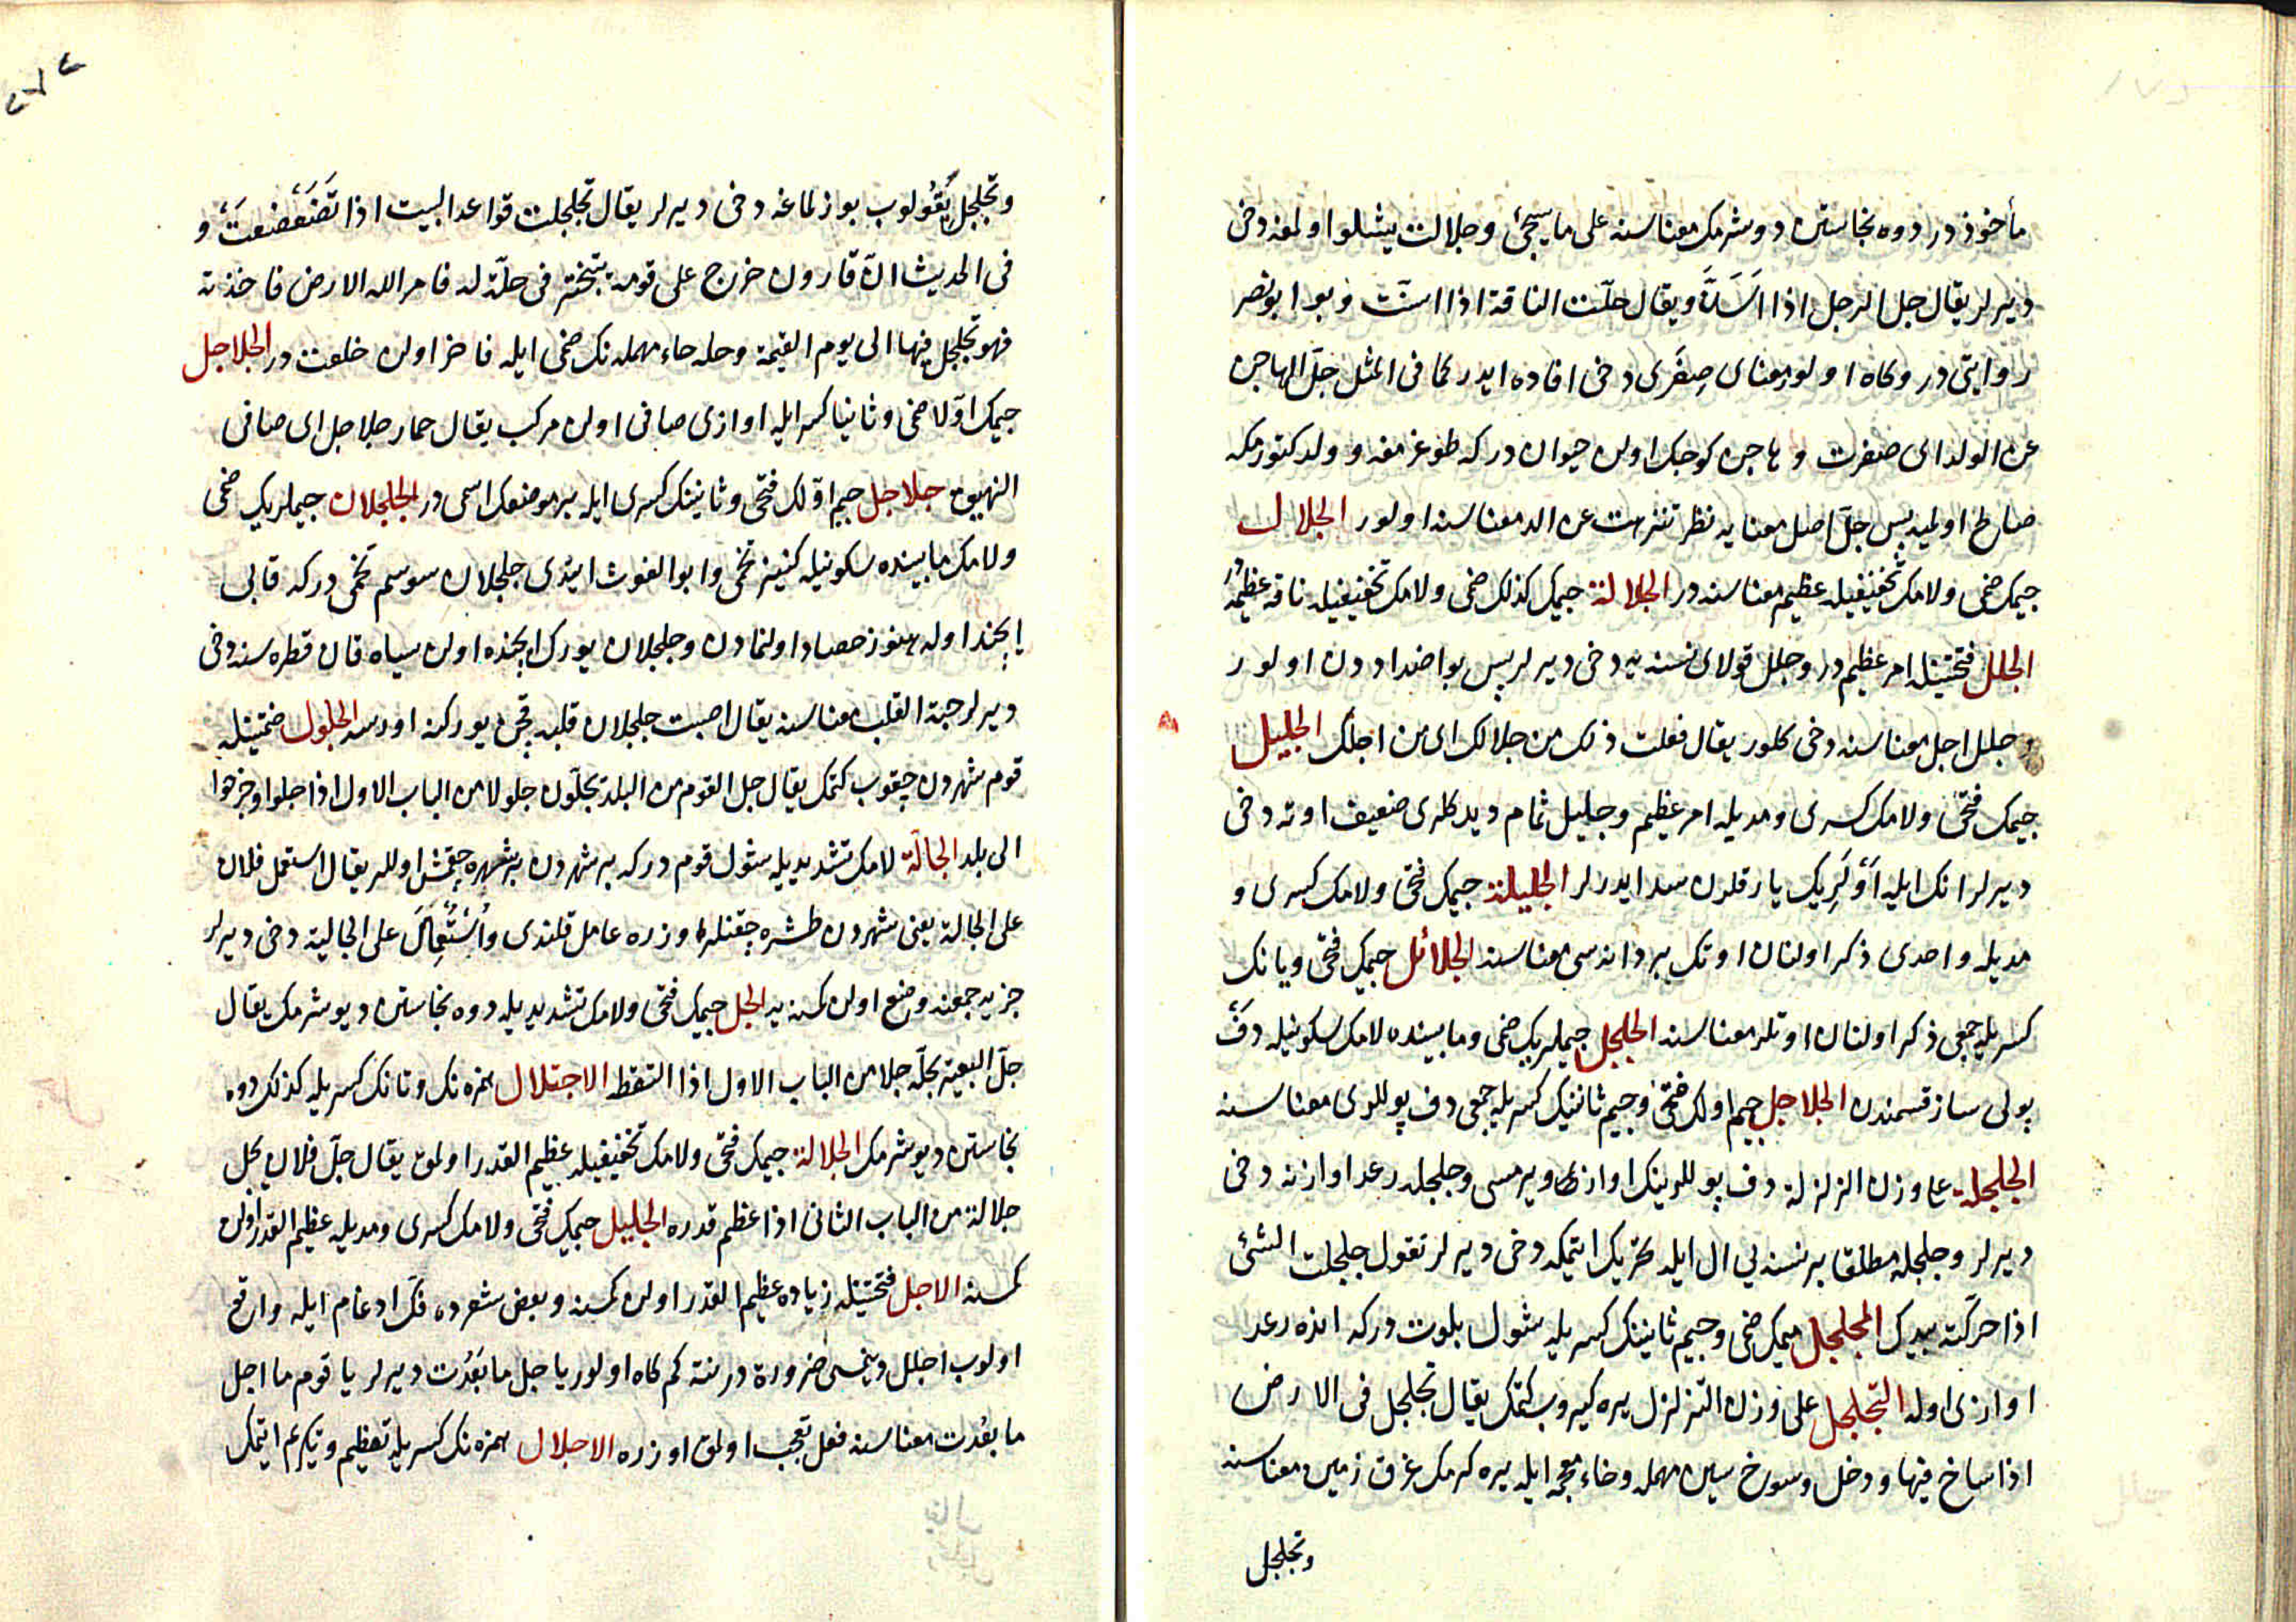 مأخوذ در دوه نجاستن دوشرمك معناسنه علی ما سیجئ و جلالت یشلو اولمغه دخی
دیرلر یقال جل الرجل اذا اَسَنَّ و یقال جلّت الناقة اذا اسنّت و بو ابو نصر
روایتی در و كاه اولور معنای صِغَری دخی افاده ایدر كما فی المثل جلّ الهاجن
عن الولد ای صغرت و هاجن كوجك اولن حیوان در كه طوغرمغه و ولد كتورمكه
صالح اولمیه پس جلّ اصل معنایه نظر تنزهت عن الد معناسنه اولور الجلال
جیمك ضمی و لامك تخفیفیله عظیم معناسنه در الجلالة جیمك كذلك ضمی و لامك تخفیفیله ناقۀ عظیمة
الجلل فتحتینله امر عظیم در و جلل قولای نسنه یه دخی دیرلر پس بو اضداددن اولور
و جلل اجل معناسنه دخی كلور یقال فعلت ذلك من جلالك ای من اجلك الجلیل
جیمك فتحی و لامك كسری و مدیله امر عظیم و جلیل ثمام دیدكلری ضعیف اوته دخی
دیرلر انك ایله اَوْلَرِیك یارقلرن سد ایدرلر الجلیلة جیمك فتحی و لامك كسری و
مدیله واحدی ذكر اولنان اوتك بر دانه سی معناسنه الجلائل جیمك فتحی و یانك
كسریله جمعی ذكر اولنان اوتلر معناسنه الجلجل جیملریك ضمی و مابینده لامك سكونیله دفّ
پولی ساز قسمندن الجلاجل جیم اولك فتحی و جیم ثانینك كسریله جمعی دف پوللری معناسنه
الجلجلة علی وزن الزلزلة دف پوللرینك اوازی ویرمسی و جلجله رعد اوازنه دخی
دیرلر و جلجله مطلقا بر نسنه یی ال ایله تحریك ایتمكه دخی دیرلر تقول جلجلت الشئ
اذا حرّكته بیدك المجلجل میمك ضمی و جیم ثانینك كسریله شول بلوت در كه انده رعد
اوازی اوله التجلجل علی وزن التزلزل یره كیروب كتمك یقال تجلجل فی الارض
اذا ساخ فیها و دخل و سوخ سین مهمله و خاء معجمه ایله یره كرمك غرق زمین معناسنه
و تجلجل
و تجلجل یقولوب بوزلماغه دخی دیرلر یقال تجلجلت قواعد البیت اذا تَضَعْضَعَتْ و
فی الحدیث انّ قارون خرج علی قومه یتبختر فی حلّة له فامر الله الارض فاخذته
فهو تجلجل فیها الی یوم القیمة و حله حاء مهمله نك ضمی ایله فاخر اولن خلعت در الجلاجل
جیمك اوّلا ضمی و ثانیا كسر ایله اوازی صافی اولن مركب یقال حمار جلاجل ای صافی
النهیق جلاجل جیم اوّلك فتحی و ثانینك كسری ایله بر موضعك اسمی در الجلجلان جیملریك ضمی
و لامك مابینده سكونیله كنیز تخمی و ابو الغوث ایتدی جلجلان سوسم تخمی در كه قابی
ایچنده اوله هنوز حصاد اولنمادن و جلجلان یورك ایچنده اولن سیاه قان قطره سنه دخی
دیرلر حبة القلب معناسنه یقال اصبت جلجلان قلبه قچن یوركنه اورسه الجلول ضمتینله
قوم شهردن چقوب كتمك یقال جل القوم من البلد یجلّون جلولا من الباب الاول اذا جلوا و خرجوا
الی بلد الجالّة لامك تشدیدیله شول قوم در كه بر شهردن بر شهره چقمش اوللر یقال استعمل فلان
علی الجالة یعنی شهردن طشره چقنلر اوزره عامل قلندی و اُسْتُعْمِلَ علی الجالیة دخی دیرلر
جزیه جمعنه وضع اولن كمسنه یه الجل جیمك فتحی و لامك تشدیدیله دوه نجاستن دیوشرمك یقال
جلّ البعیر یجلّه جلا من الباب الاول اذا التقط الاجتلال همزه نك و تانك كسریله كذلك دوه
نجاستن دیوشرمك الجلالة جیمك فتحی و لامك تخفیفیله عظیم القدر اولمق یقال جلّ فلان یجل
جلالة من الباب الثانی اذا عظم قدره الجلیل جیمك فتحی و لامك كسری و مدیله عظیم القدر اولن
كمسنه الاجل فتحتینله زیاده عظیم القدر اولن كمسنه و بعض شعرده فكّ ادغام ایله واقع
اولوب اجلل دینمسی ضرورة در نته كم كاه اولور یا جل ما بَعُدَت دیرلر یا قوم ما اجل
ما بعُدت معناسنه فعل تعجب اولمق اوزره الاجلال همزه نك كسریله تعظیم و تكریم ایتمك